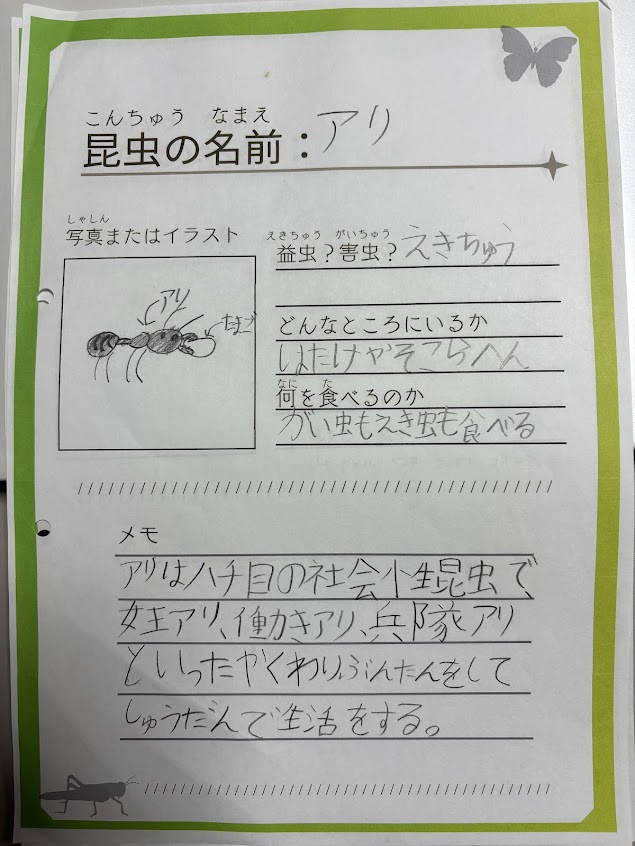 こんちゅう なまえ
昆虫の名前：アリ
しゃしん
写真またはイラスト
アリ
たまご
えきちゅう がいちゅう
益虫？害虫？えきちゅう
どんなところにいるか
はたけやそこらへん
なに た
何を食べるのか
がい虫もえき虫も食べる
メモ
アリはハチ目の社会小生昆虫で、
女王アリ、働きアリ、兵隊アリ
といったやくわりぶんたんをして
しゅうだんで生活をする。